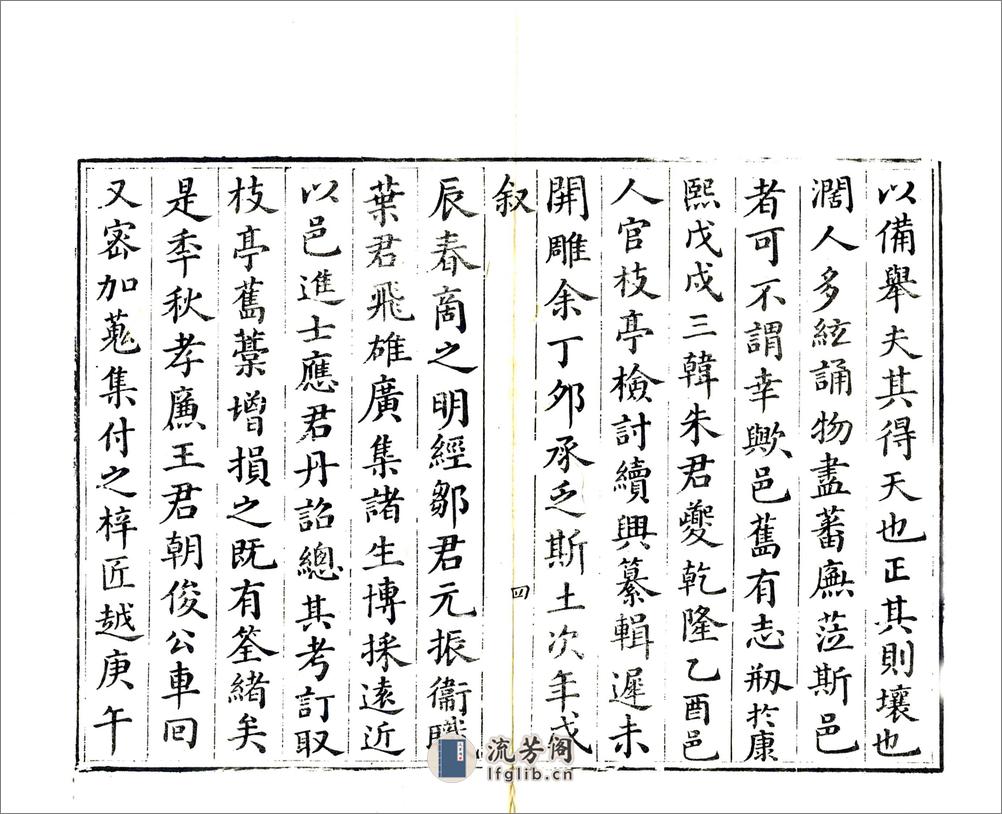 以備舉夫其得天也正其則壤也
濶人多絃誦物盡蕃廡蒞斯邑
者可不謂幸歟邑舊有志刱於康
熙戊戌三韓朱君夔乾隆乙酉邑
人官枝亭檢討續興纂輯遲未
開雕余丁夘承乏斯土次年戊
叙
四
辰春商之明經鄒君元振衞職
葉君飛雄廣集諸生博採遠近
以邑進士應君丹詔總其考訂取
枝亭舊藁增損之既有筌緒矣
是秊秋孝廉王君朝俊公車回
又宻加蒐集付之梓匠越庚午
流芳阁
lfglib.cn